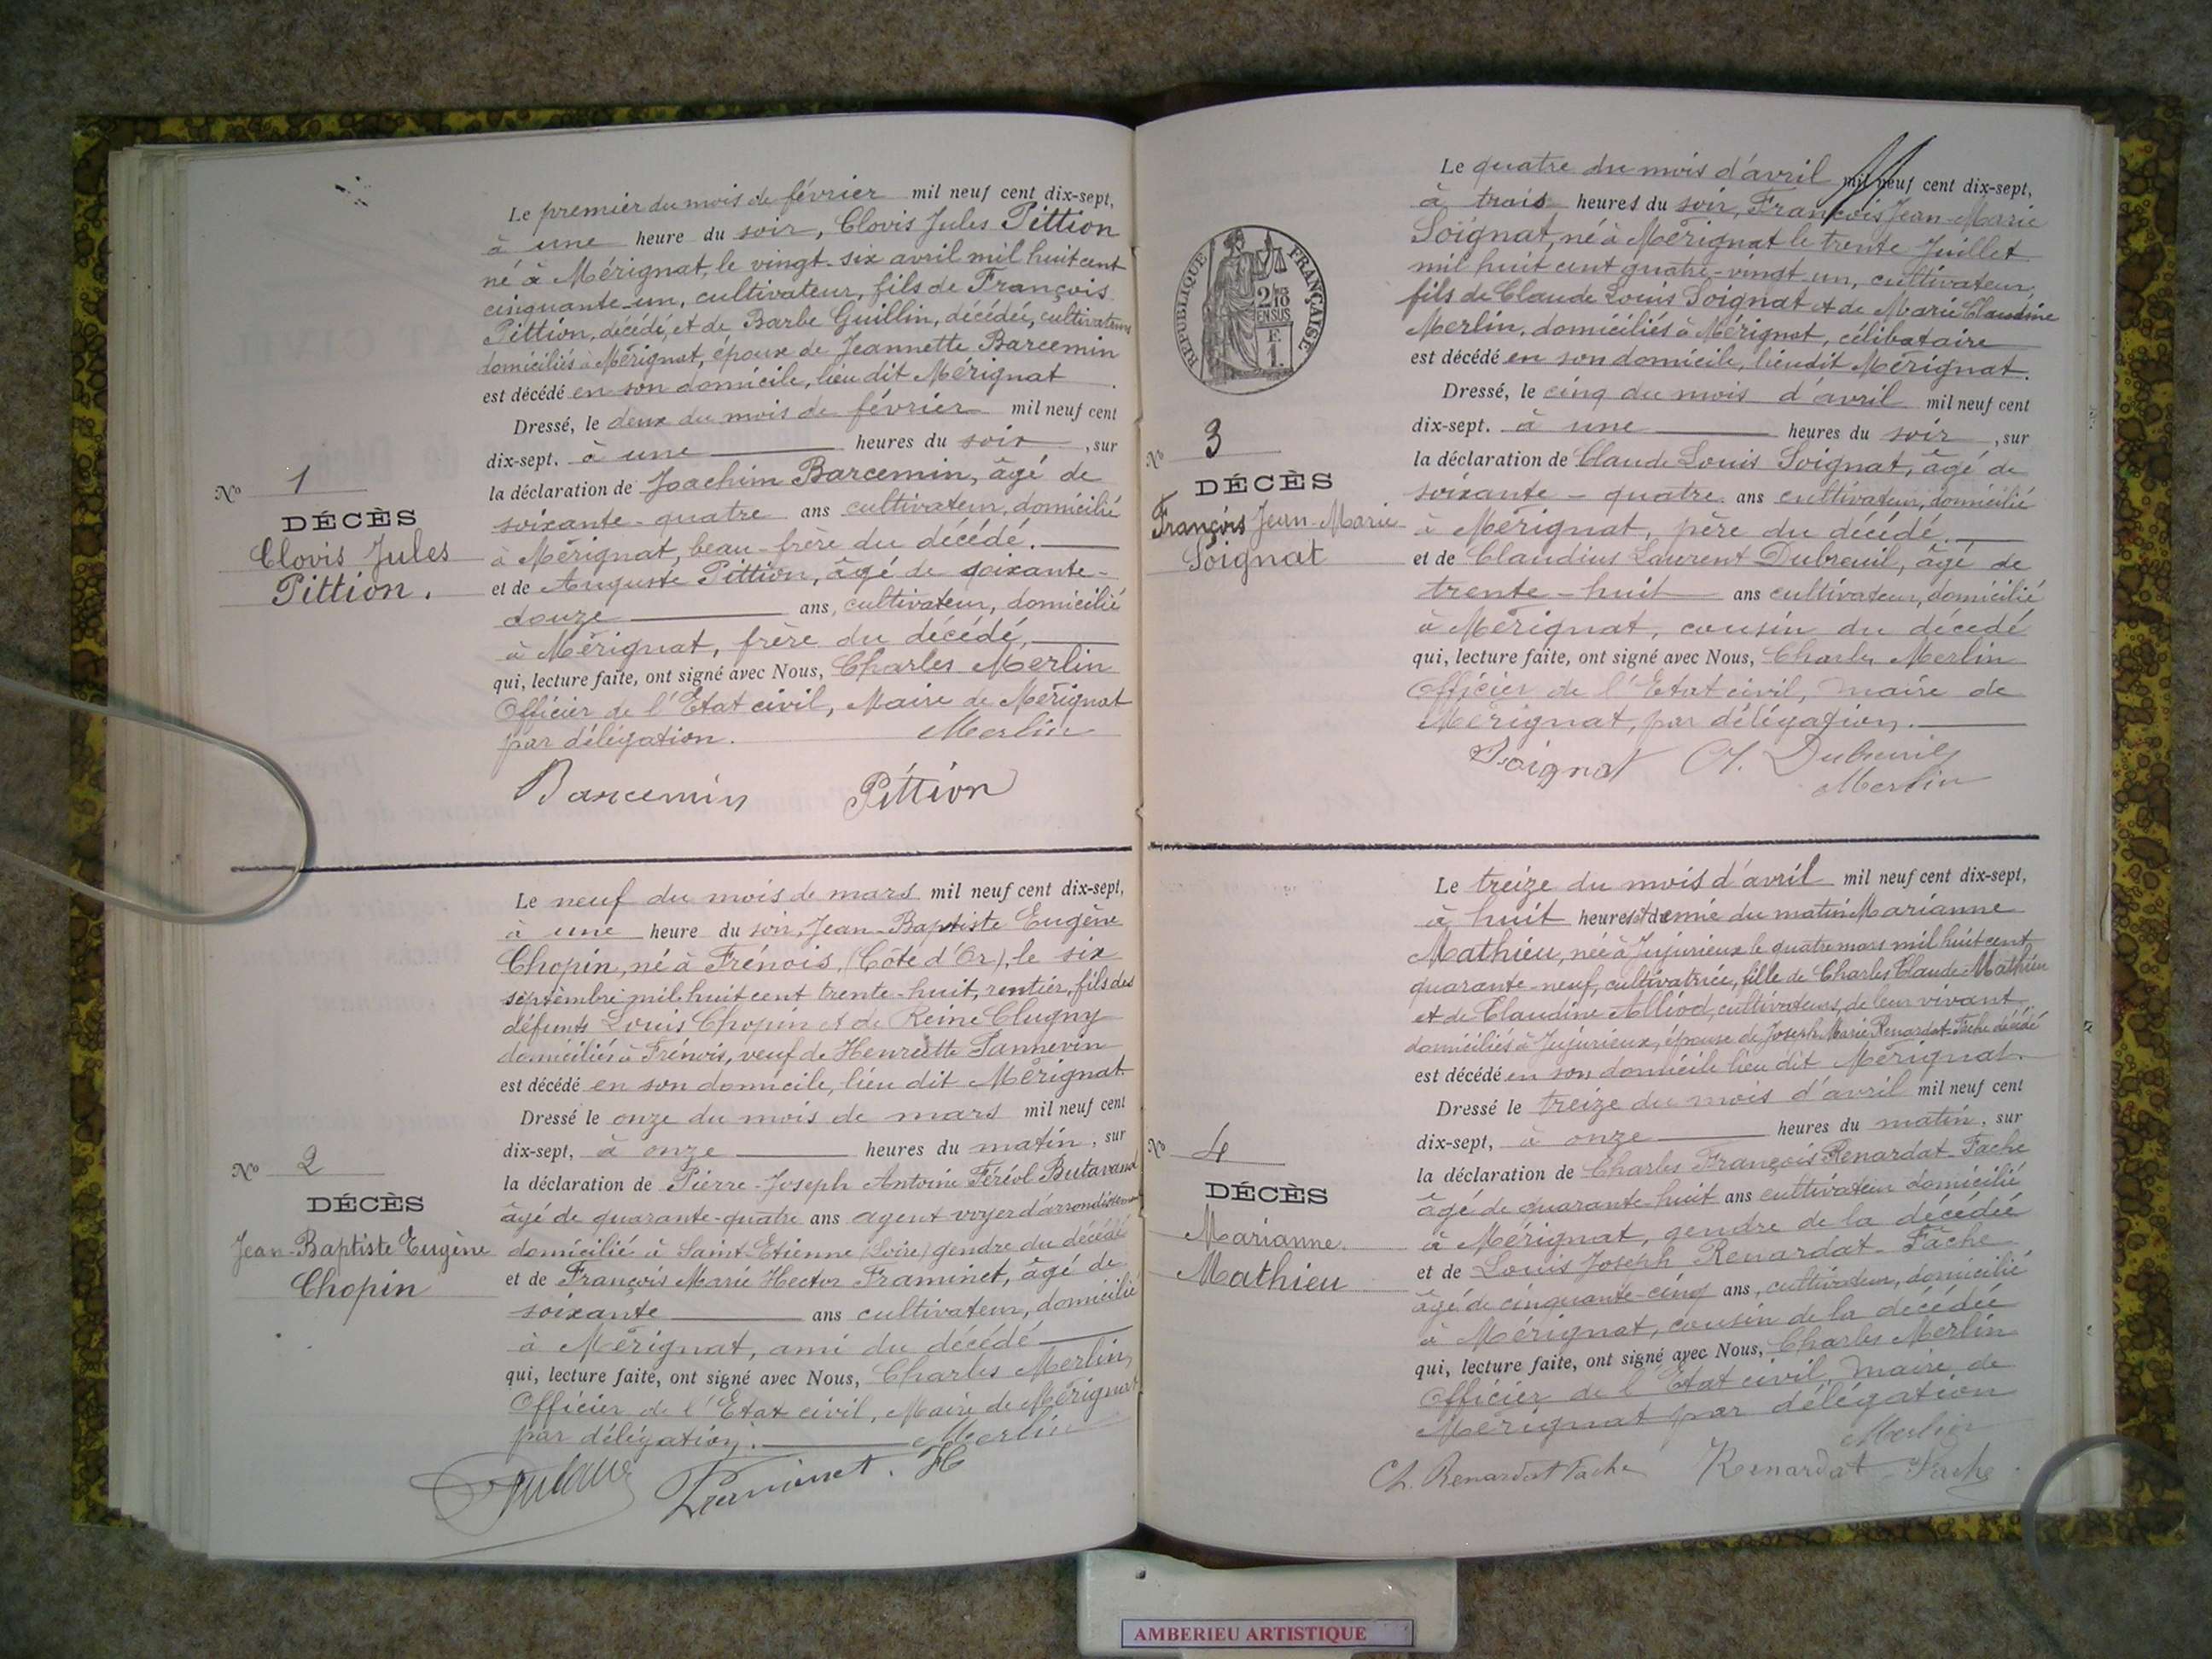 Le premier du mois de février mil neuf cent dix-sept,
à une heure du soir, Clovis Jules Pittion
né à Mérignat, le vingt-six avril mil huit cent
cinquante-un, cultivateur, fils de François
Pittion, décédé, et de Barbe Guillin, décédée, cultivateurs
domiciliés à Mérignat, époux de Jeannette Barcemin
est décédé en son domicile, lieu dit Mérignat.
Dressé, le deux du mois de février mil neuf cent
dix-sept, à une heures du soir, sur
la déclaration de Joachim Barcemin, âgé de
soixante-quatre ans cultivateur, domicilié
à Mérignat, beau-frère du décédé.
et de Auguste Pittion, âgé de soixante-
douze ans, cultivateur, domicilié
à Mérignat, frère du décédé,
qui, lecture faite, ont signé avec Nous, Charles Merlin
Officier de l'Etat civil, Maire de Mérignat
par délégation. Merlin
Barcemin Pittion
N° 1
DÉCÈS
Clovis Jules
Pittion.
Le neuf du mois de mars mil neuf cent dix-sept,
à une heure du soir, Jean-Baptiste Eugène
Chopin, né à Frénois, (Côte d'Or), le six
septembre mil huit cent trente-huit, rentier, fils des
défunts Louis Chopin et de Reine Clugny
domiciliés à Frénois, veuf de Henriette Sannevin
est décédé en son domicile, lieu dit Mérignat.
Dressé le onze du mois de mars mil neuf cent
dix-sept, à onze heures du matin, sur
la déclaration de Pierre-Joseph Antoine Féréol Butavand
âgé de quarante-quatre ans agent-voyer d'arrondissement
domicilié à Saint-Etienne (Loire) gendre du décédé
et de François Marie Hector Framinet, âgé de
soixante ans cultivateur, domicilié
à Mérignat, ami du décédé
qui, lecture faite, ont signé avec Nous, Charles Merlin,
Officier de l'Etat civil, Maire de Mérignat
par délégation. Merlin
Framinet. H
N° 2
DÉCÈS
Jean-Baptiste Eugène
Chopin
Le quatre du mois d'avril mil neuf cent dix-sept,
à trois heures du soir, François Jean-Marie
Soignat, né à Mérignat le trente Juillet
mil huit cent quatre-vingt-un, cultivateur,
fils de Claude Louis Soignat et de Marie Claudine
Merlin, domiciliés à Mérignat, célibataire
est décédé en son domicile, lieu dit Mérignat.
Dressé, le cinq du mois d'avril mil neuf cent
dix-sept. à une heures du soir, sur
la déclaration de Claude Louis Soignat, âgé de
soixante-quatre ans cultivateur, domicilié
à Mérignat, père du décédé.
et de Claudius Laurent Dubreuil, âgé de
trente-huit ans cultivateur, domicilié
à Mérignat, cousin du décédé
qui, lecture faite, ont signé avec Nous, Charles Merlin
Officier de l'Etat civil, maire de
Mérignat, par délégation.
Soignat Cl. Dubreuil
Merlin
REPUBLIQUE FRANÇAISE
2/10
EN SUS
F.
1.
N° 3
DÉCÈS
François Jean-Marie
Soignat
Le treize du mois d'avril mil neuf cent dix-sept,
à huit heures et demie du matin Marianne
Mathieu, née à Jujurieux le quatre mars mil huit cent
quarante-neuf, cultivatrice, fille de Charles Claude Mathieu
et de Claudine Alliod, cultivateurs, de leur vivant
domiciliés à Jujurieux, épouse de Joseph Marie Renardat-Fache décédé
est décédé en son domicile lieu dit Mérignat.
Dressé le treize du mois d'avril mil neuf cent
dix-sept, à onze heures du matin, sur
la déclaration de Charles François Renardat-Fache
âgé de quarante-huit ans cultivateur domicilié
à Mérignat, gendre de la décédée
et de Louis Joseph Renardat-Fache
âgé de cinquante-cinq ans, cultivateur, domicilié
à Mérignat, cousin de la décédée
qui, lecture faite, ont signé avec Nous, Charles Merlin
Officier de l'Etat civil, maire de
Mérignat par délégation
Merlin
Ch. Renardat Fache Renardat Fache
N° 4
DÉCÈS
Marianne
Mathieu
AMBERIEU ARTISTIQUE